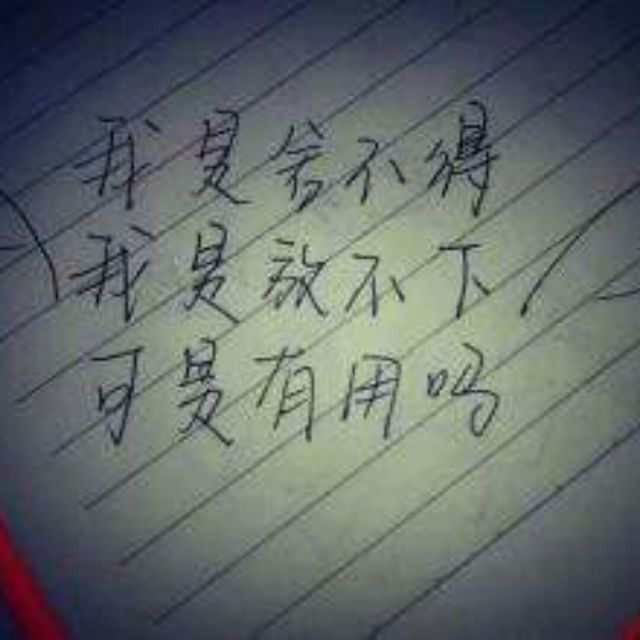 我是舍不得
我是放不下
可是有用吗